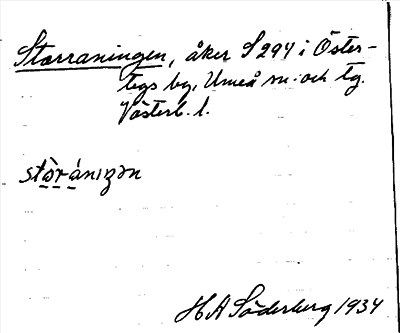 Storraningen, åker S294 i Öster-
tegs by, Umeå sn. och tg.
Västerb. l.
stòránıŋən
H A Söderberg 1934